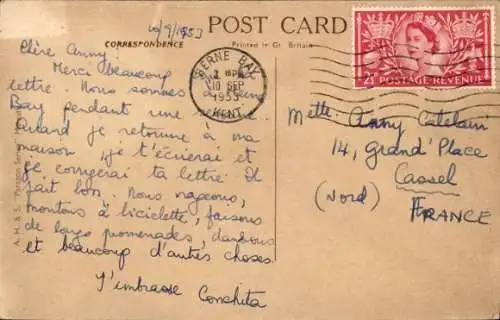 10/9/1953
POST CARD
CORRESPONDENCE
Printed in Gt. Britain
Chère Anny.
Merci beaucoup
lettre. Nous sommes
Bay pendant une
Quand je retourne à ma
maison je t'écrierai et
je corrigerai ta lettre Il
fait bon. Nous nageons,
montons à biciclette, faisons
de longs promenades, dansons
et beaucoup d'autres choses
J'embrasse Conchita
A. H. & S.
HERNE BAY
10 SEP
1953
KENT
2½d POSTAGE REVENUE
Melle: Anny Catelain
14, Grand'Place
Cassel
(Nord)
FRANCE